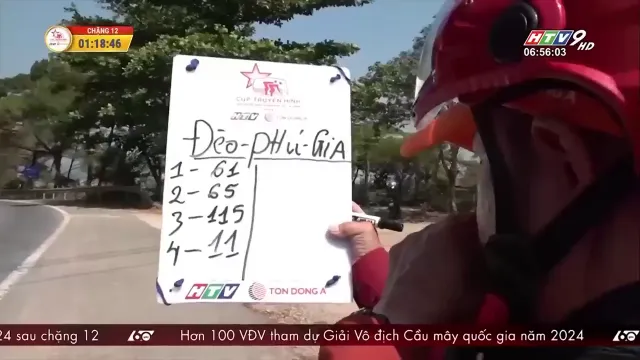 CHẶNG 12
01:18:46
HTV9 HD
06:56:03
CÚP TRUYỀN HÌNH
HTV TON DONG A
Đèo-PHÚ-GIA
1-61
2-65
3-115
4-11
HTV TON DONG A
24 sau chặng 12 60 Hơn 100 VĐV tham dự Giải Vô địch Cầu mây quốc gia năm 2024 60